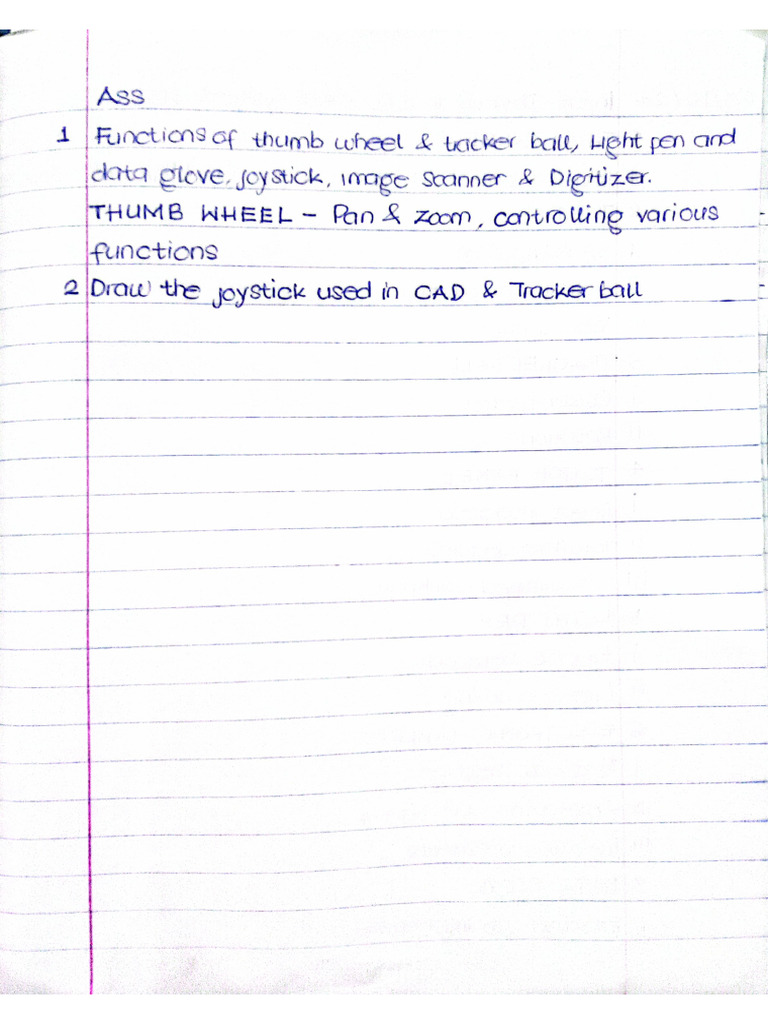 Ass
1 Functions of thumb wheel & tracker ball, Light pen and
data glove, joystick, image scanner & Digitizer.
THUMB WHEEL - Pan & zoom, controlling various
functions
2 Draw the joystick used in CAD & Tracker ball